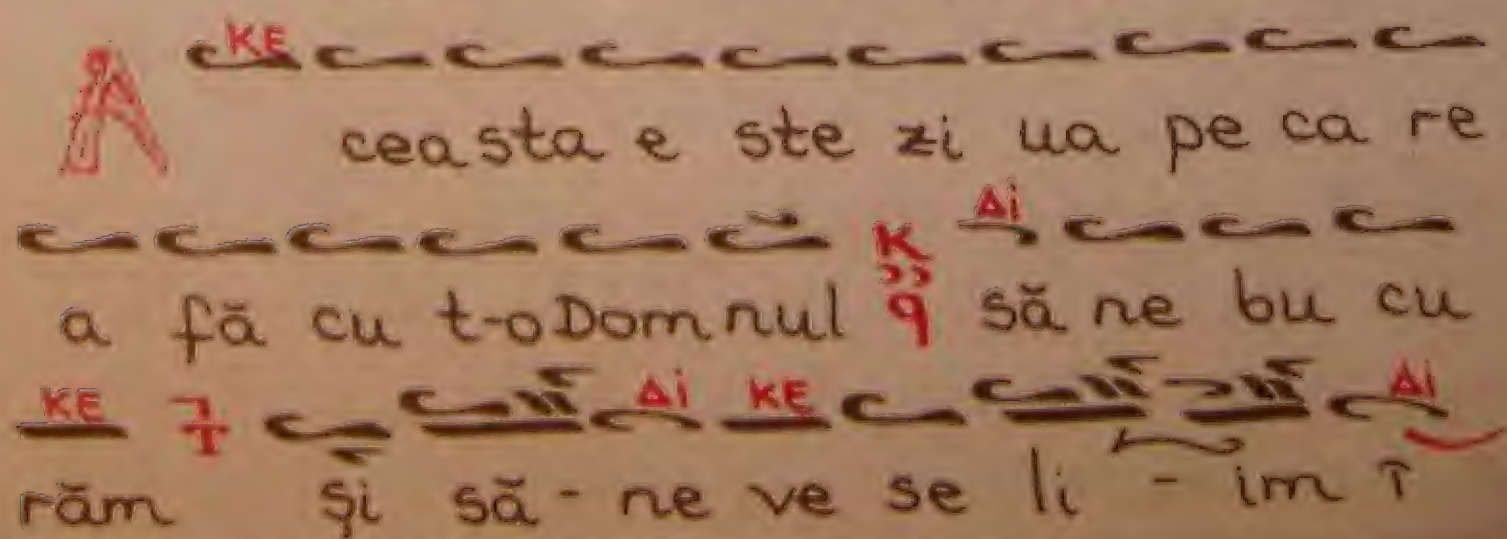 KE
A ceasta e ste zi ua pe ca re
Δi
a fă cu t-o Domnul K să ne bu cu
KE Δi KE Δi
răm şi să - ne ve se li - im î